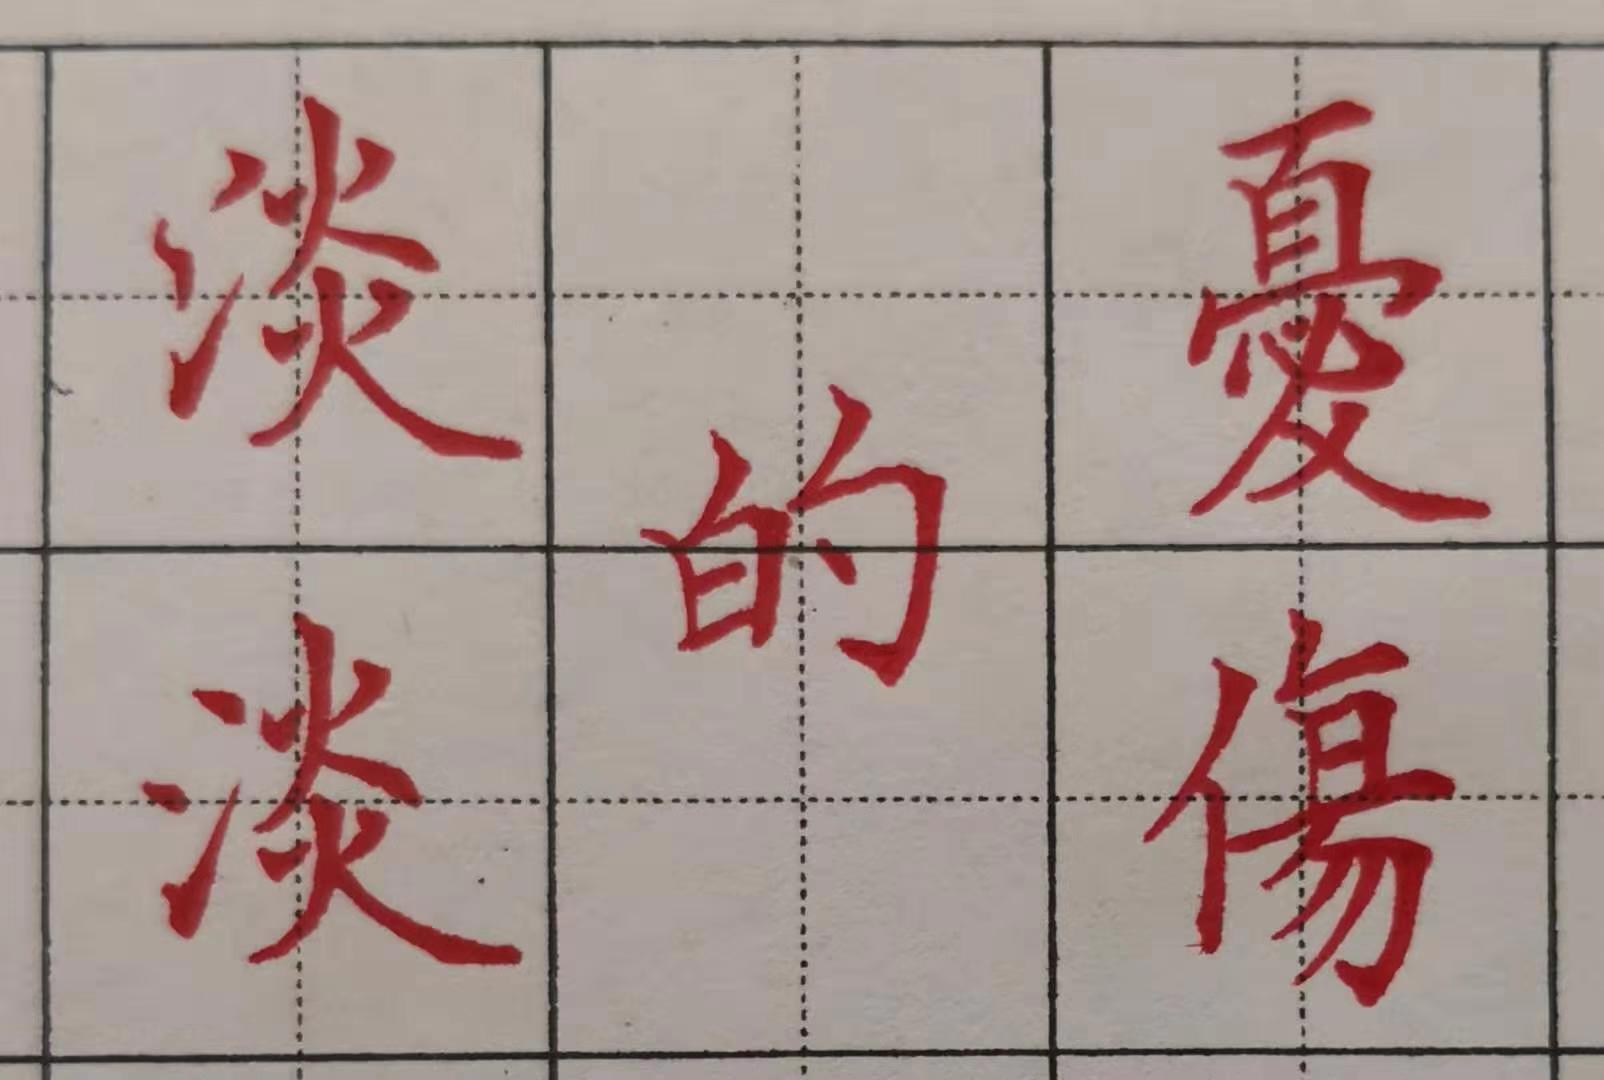 淡淡
的
憂傷